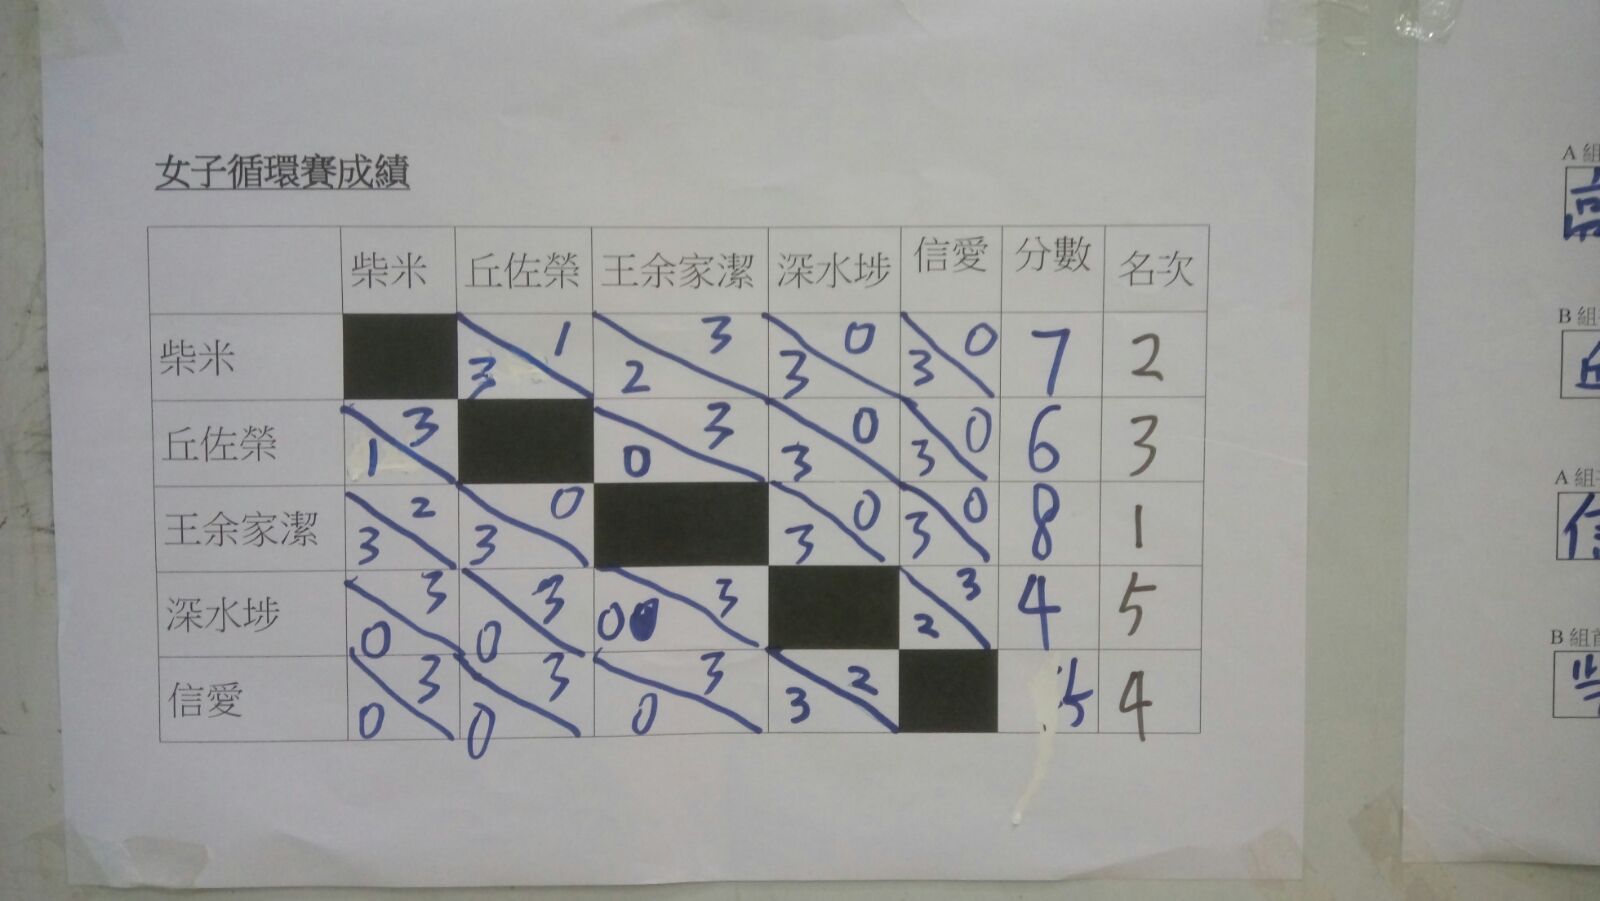 女子循環賽成績
柴米 丘佐榮 王余家潔 深水埗 信愛 分數 名次
柴米 3 1 2 3 3 0 3 0 7 2
丘佐榮 1 3 0 3 3 0 3 0 6 3
王余家潔 3 2 3 0 3 0 3 0 8 1
深水埗 0 3 0 3 0 3 2 3 4 5
信愛 0 3 0 3 0 3 3 2 5 4
A 組
B 組
A 組
信
B 組